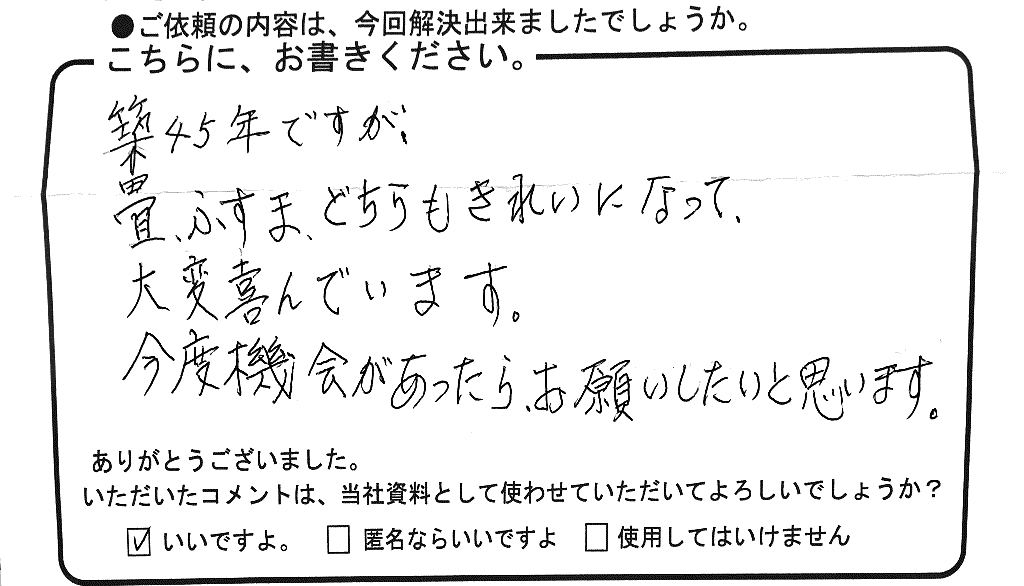 ●ご依頼の内容は、今回解決出来ましたでしょうか。
こちらに、お書きください。
築45年ですが、
畳、ふすま、どちらもきれいになって、
大変喜んでいます。
今度機会があったら、お願いしたいと思います。
ありがとうございました。
いただいたコメントは、当社資料として使わせていただいてよろしいでしょうか？
☑ いいですよ。 □ 匿名ならいいですよ □ 使用してはいけません